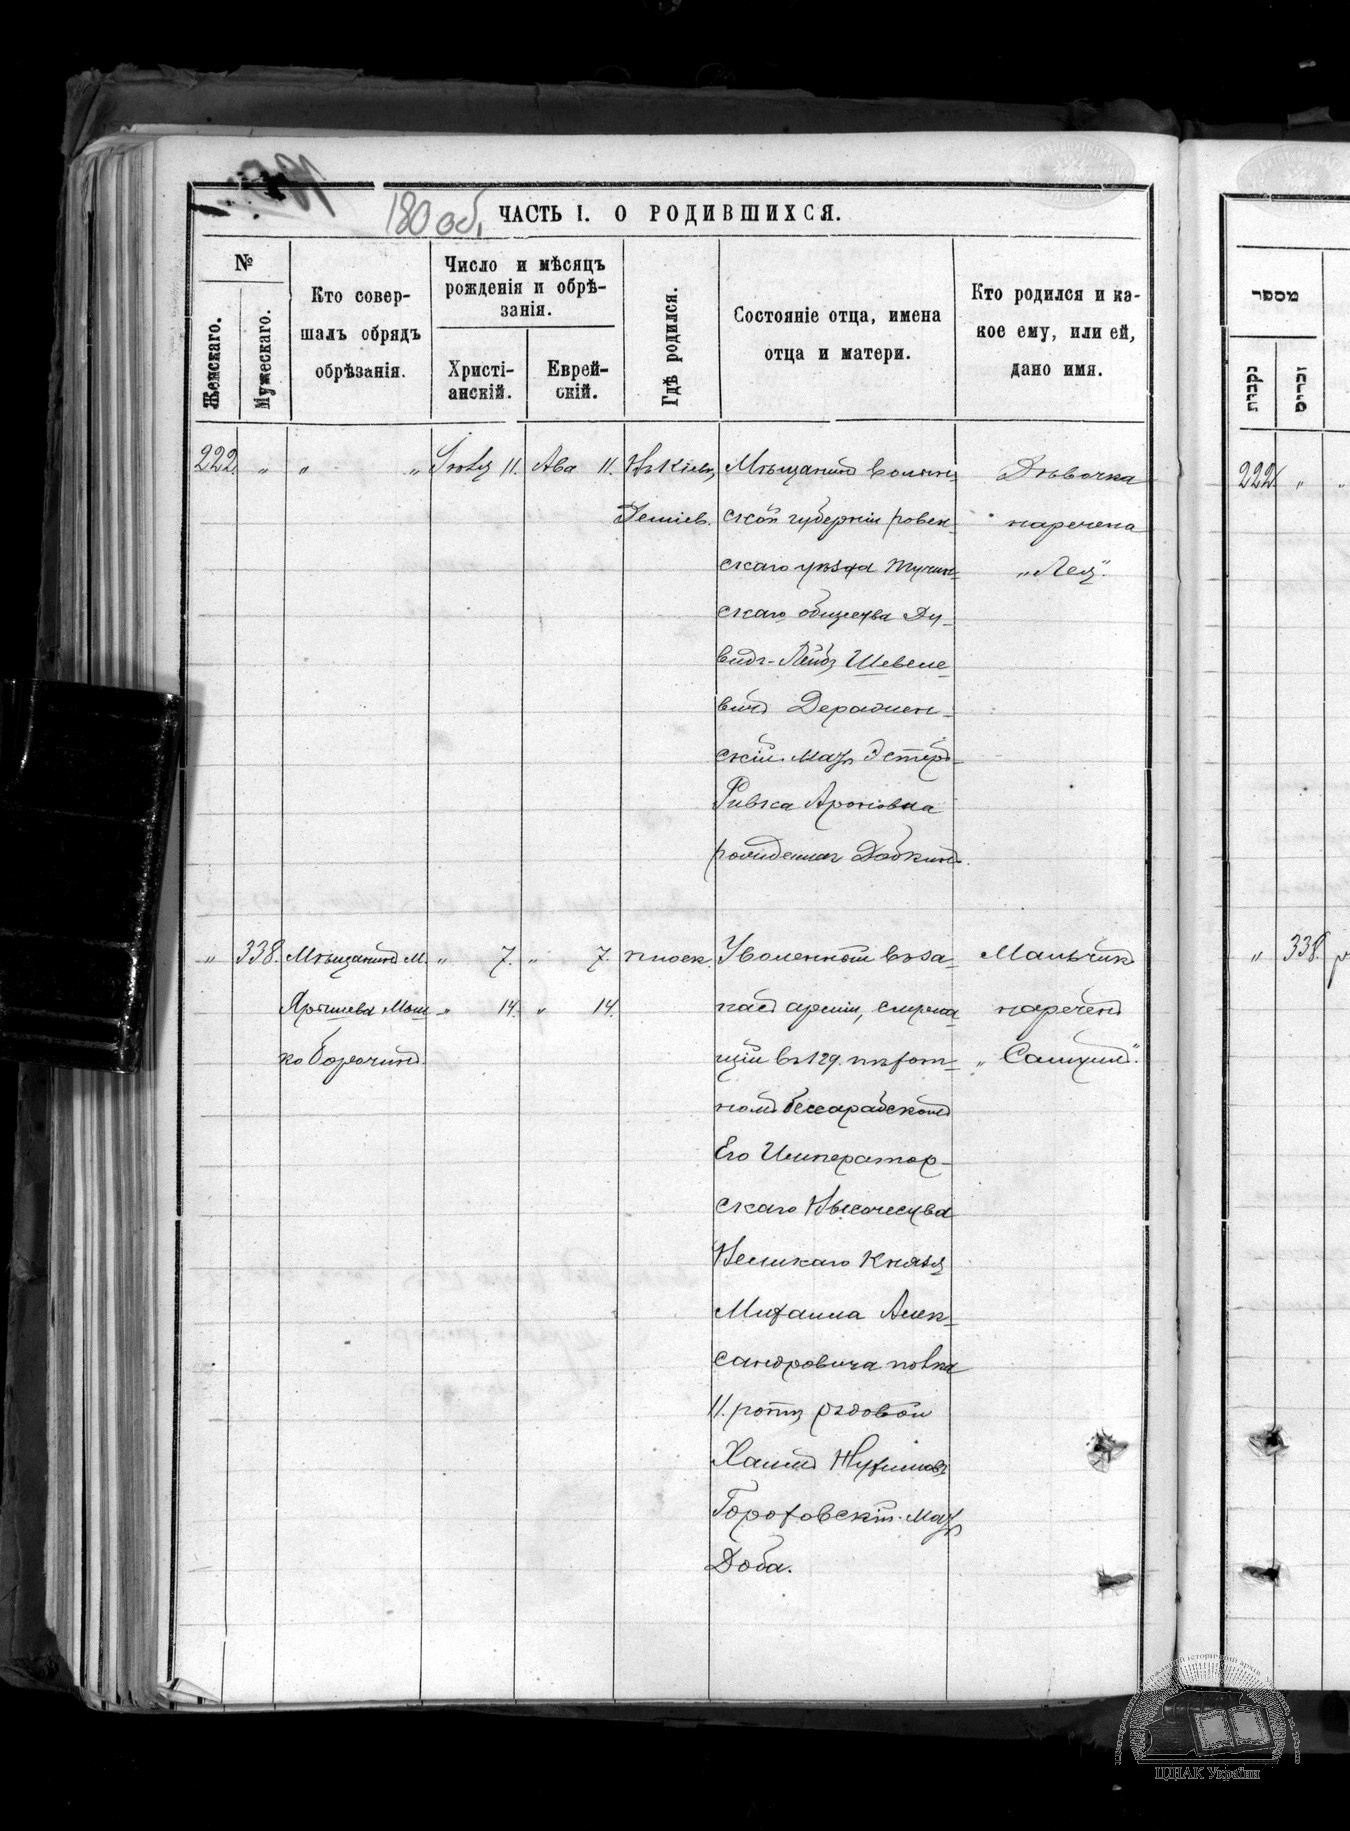 180 об.
ЧАСТЬ I. О РОДИВШИХСЯ.
№
Женскаго.
Мужескаго.
Кто совер-
шалъ обрядъ
обрѣзанія.
Число и мѣсяцъ
рожденія и обрѣ-
занія.
Христі-
анскій.
Еврей-
скій.
Гдѣ родился.
Состояніе отца, имена
отца и матери.
Кто родился и ка-
кое ему, или ей,
дано имя.
222. „ „ „ Іюля 11. Ава 11. Въ Кіевѣ,
Деміев.
Мѣщанинъ Волын-
ской губерніи ровен-
скаго уѣзда Тучин-
скаго общества Ду-
видъ-Лейбъ Шевеле-
вичъ Деражнен-
скій. мать Эстеръ-
Ривка Ароновна
рожденная Добкинъ.
Дѣвочка
наречена
„Лея“.
„ 338. Мѣщанинъ М.
Ярышева Мош-
ко
„ 7. „ 7. п поск.
„ 14. „ 14.
Уволенной въ за-
пасъ арміи,
въ 129. пѣхот-
номъ бессарабскомъ
Его Император-
скаго Высочества
Великаго Князя
Михаила Алек-
сандровича полка
11. роты рядовой
Хаимъ
Гороховскій. мать
Доба.
Мальчикъ
нареченъ
„Самуилъ“.
מספר
נקבות
זכרים
222. „
„ 338.
ЦДІАК України